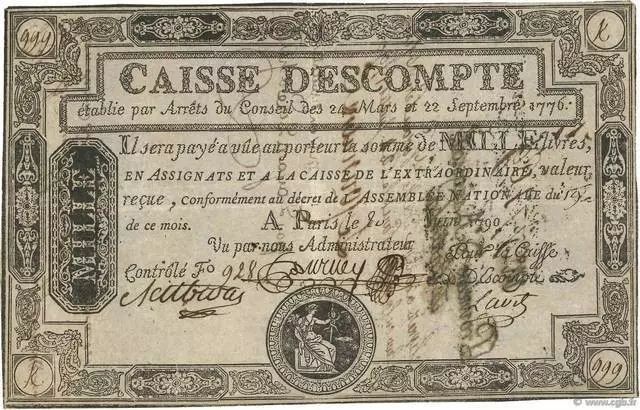 999
K
CAISSE D'ESCOMPTE
établie par Arrêts du Conseil des 24 Mars et 22 Septembre 1776.
Il sera payé à vûe au porteur la somme de MILLE livres,
EN ASSIGNATS ET A LA CAISSE DE L'EXTRAORDINAIRE, valeur
reçue, conformément au décret de L'ASSEMBLÉE NATIONALE du
de ce mois. A Paris le 1790
Vu par nous Administrateur Pour la Caisse
Contrôlé Fo 928 d'Escompte
MILLE
K
999
www.cgb.fr